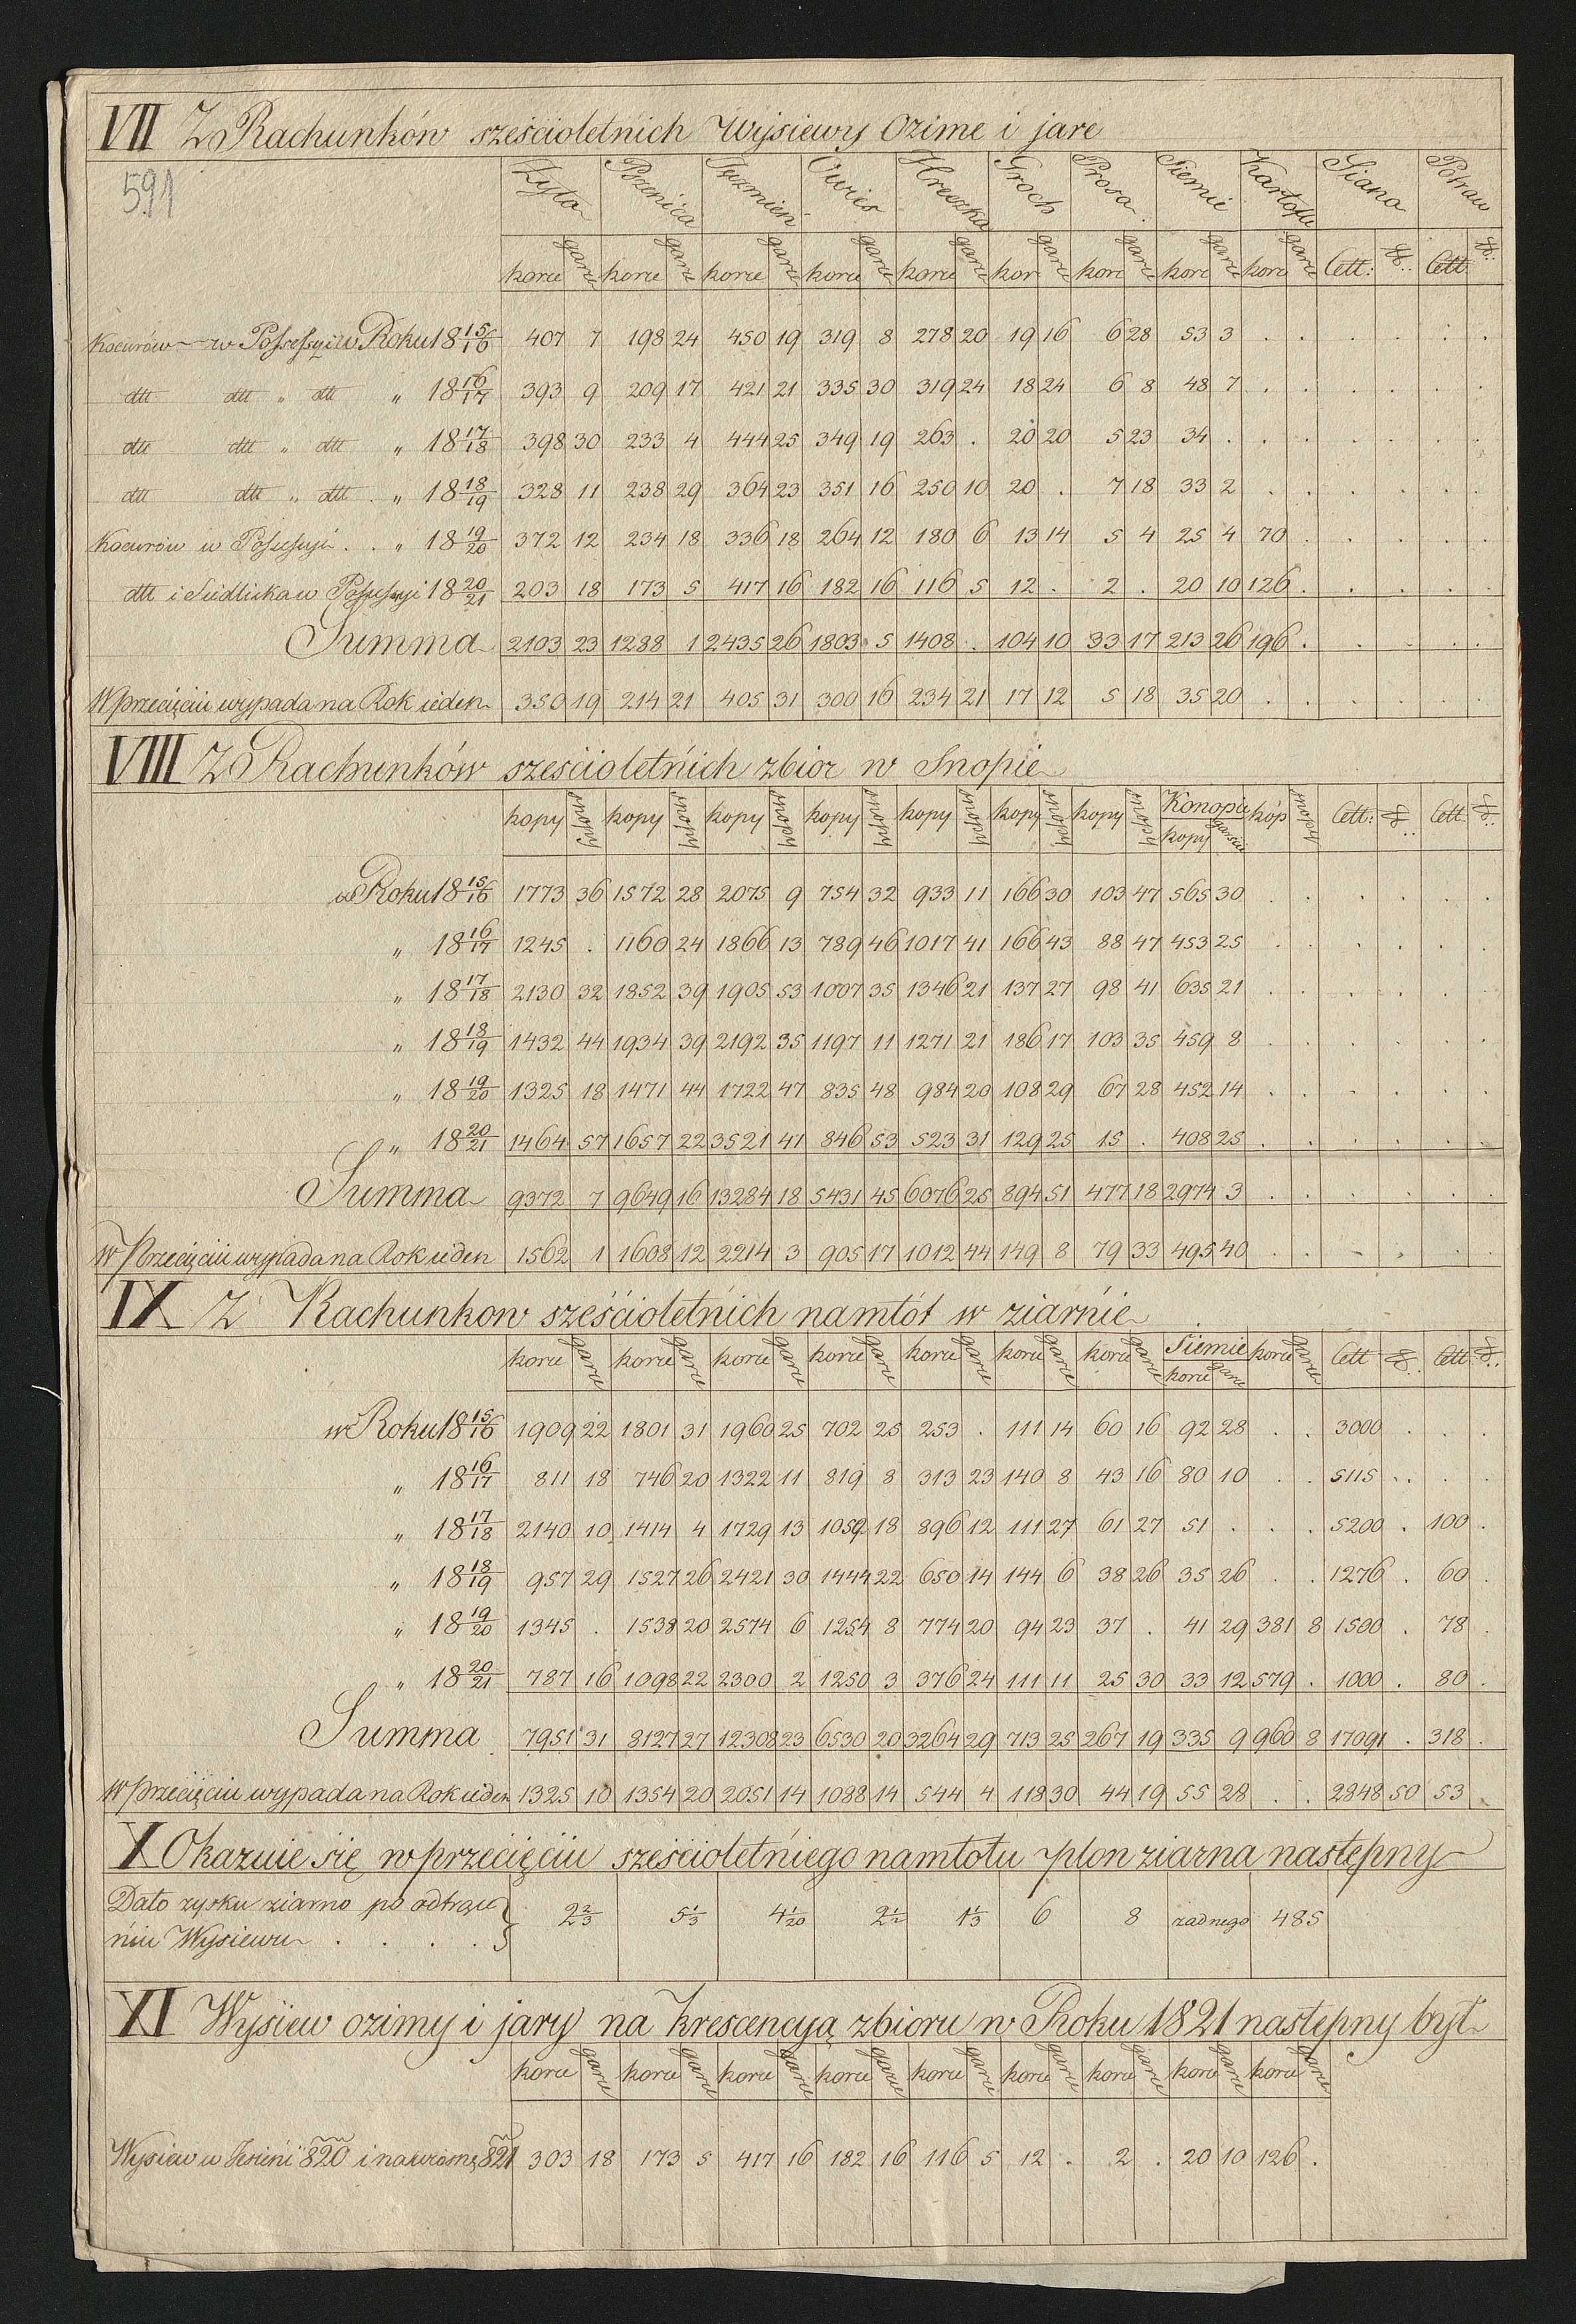 VII Z Rachunków sześcioletńich Wysiewy Ozime i jare
591
Zyta Pszenica Jęzmień Owies Hreczka Groch Prosa Siemie Kartofle Siana Potraw
korce garce korce garce korce garce korce garce korce garce kor garce korc garce korc garce korc garce Cett: ℔: Cett ℔:
Kocurów w Possessyi w Roku 18 15/16 407 7 198 24 450 19 319 8 278 20 19 16 6 28 53 3 . . . . . .
dtt dtt " dtt " 18 16/17 393 9 209 17 421 21 335 30 319 24 18 24 6 8 48 7 . . . . . .
dtt dtt " dtt " 18 17/18 398 30 233 4 444 25 349 19 263 . 20 20 5 23 34 . . . . . . .
dtt dtt " dtt " 18 18/19 328 11 238 29 364 23 351 16 250 10 20 . 7 18 33 2 . . . . . .
Kocurów w Possessyi . . " 18 19/20 372 12 234 18 336 18 264 12 180 6 13 14 5 4 25 4 70 . . . . .
dtt i Siedliska w Possessyi 18 20/21 203 18 173 5 417 16 182 16 116 5 12 . 2 . 20 10 126 . . . . .
Summa 2103 23 1288 1 2435 26 1803 5 1408 . 104 10 33 17 213 26 196 . . . . .
W przecięciu wypada na Rok ieden 350 19 214 21 405 31 300 16 234 21 17 12 5 18 35 20 . . . . . .
VIII Z Rachunków sześcioletńich zbior w Snopie
kopy snopy kopy snopy kopy snopy kopy snopy kopy snopy kopy snopy kopy snopy Konopie kopy garście kóp snopy Cett: ℔: Cett ℔:
w Roku 18 15/16 1773 36 1572 28 2075 9 754 32 933 11 166 30 103 47 565 30 . . . . . .
" 18 16/17 1245 . 1160 24 1866 13 789 46 1017 41 166 43 88 47 453 25 . . . . . .
" 18 17/18 2130 32 1852 39 1905 53 1007 35 1346 21 137 27 98 41 635 21 . . . . . .
" 18 18/19 1432 44 1934 39 2192 35 1197 11 1271 21 186 17 103 35 459 8 . . . . . .
" 18 19/20 1325 18 1471 44 1722 47 835 48 984 20 108 29 67 28 452 14 . . . . . .
" 18 20/21 1464 57 1657 22 3521 41 846 53 523 31 129 25 15 . 408 25 . . . . . .
Summa 9372 7 9649 16 13284 18 5431 45 6076 25 894 51 477 18 2974 3 . . . . . .
W Przecięciu wypada na Rok ieden 1562 1 1608 12 2214 3 905 17 1012 44 149 8 79 33 495 40 . . . . . .
IX Z Rachunkow sześcioletńich namłót w ziarńie
korce garce korce garce korce garce korce garce korce garce korce garce korce garce Siemie korce garce korce garce Cett ℔: Cett ℔:
w Roku 18 15/16 1909 22 1801 31 1960 25 702 25 253 . 111 14 60 16 92 28 . . 3000 . . .
" 18 16/17 811 18 746 20 1322 11 819 8 313 23 140 8 43 16 80 10 . . 5115 . . .
" 18 17/18 2140 10 1414 4 1729 13 1059 18 896 12 111 27 61 27 51 . . . 5200 . 100 .
" 18 18/19 957 29 1527 26 2421 30 1444 22 650 14 144 6 38 26 35 26 . . 1276 . 60 .
" 18 19/20 1345 . 1538 20 2574 6 1254 8 774 20 94 23 37 . 41 29 381 8 1500 . 78 .
" 18 20/21 787 16 1098 22 2300 2 1250 3 376 24 111 11 25 30 33 12 579 . 1000 . 80 .
Summa 7951 31 8127 27 12308 23 6530 20 3264 29 713 25 267 19 335 9 960 8 17091 . 318 .
W przecięciu wypada na Rok ieden 1325 10 1354 20 2051 14 1088 14 544 4 118 30 44 19 55 28 . . 2848 50 53 .
X Okazuie się w przecięciu sześcioletńiego namłotu plon ziarna następny
Dało zysku ziarno po odtrące
niu Wysiewu . . . . } 2 2/3 5 1/3 4 1/20 2 1/2 1 1/3 6 8 żadnego 485
XI Wysiew ozimy i jary na krescencyą zbioru w Roku 1821 następny był
korce garce korce garce korce garce korce garce korce garce korce garce korce garce korce garce korce garce
Wysiew w Jesieni 820 i na wiosnę 821 303 18 173 5 417 16 182 16 116 5 12 . 2 . 20 10 126 .